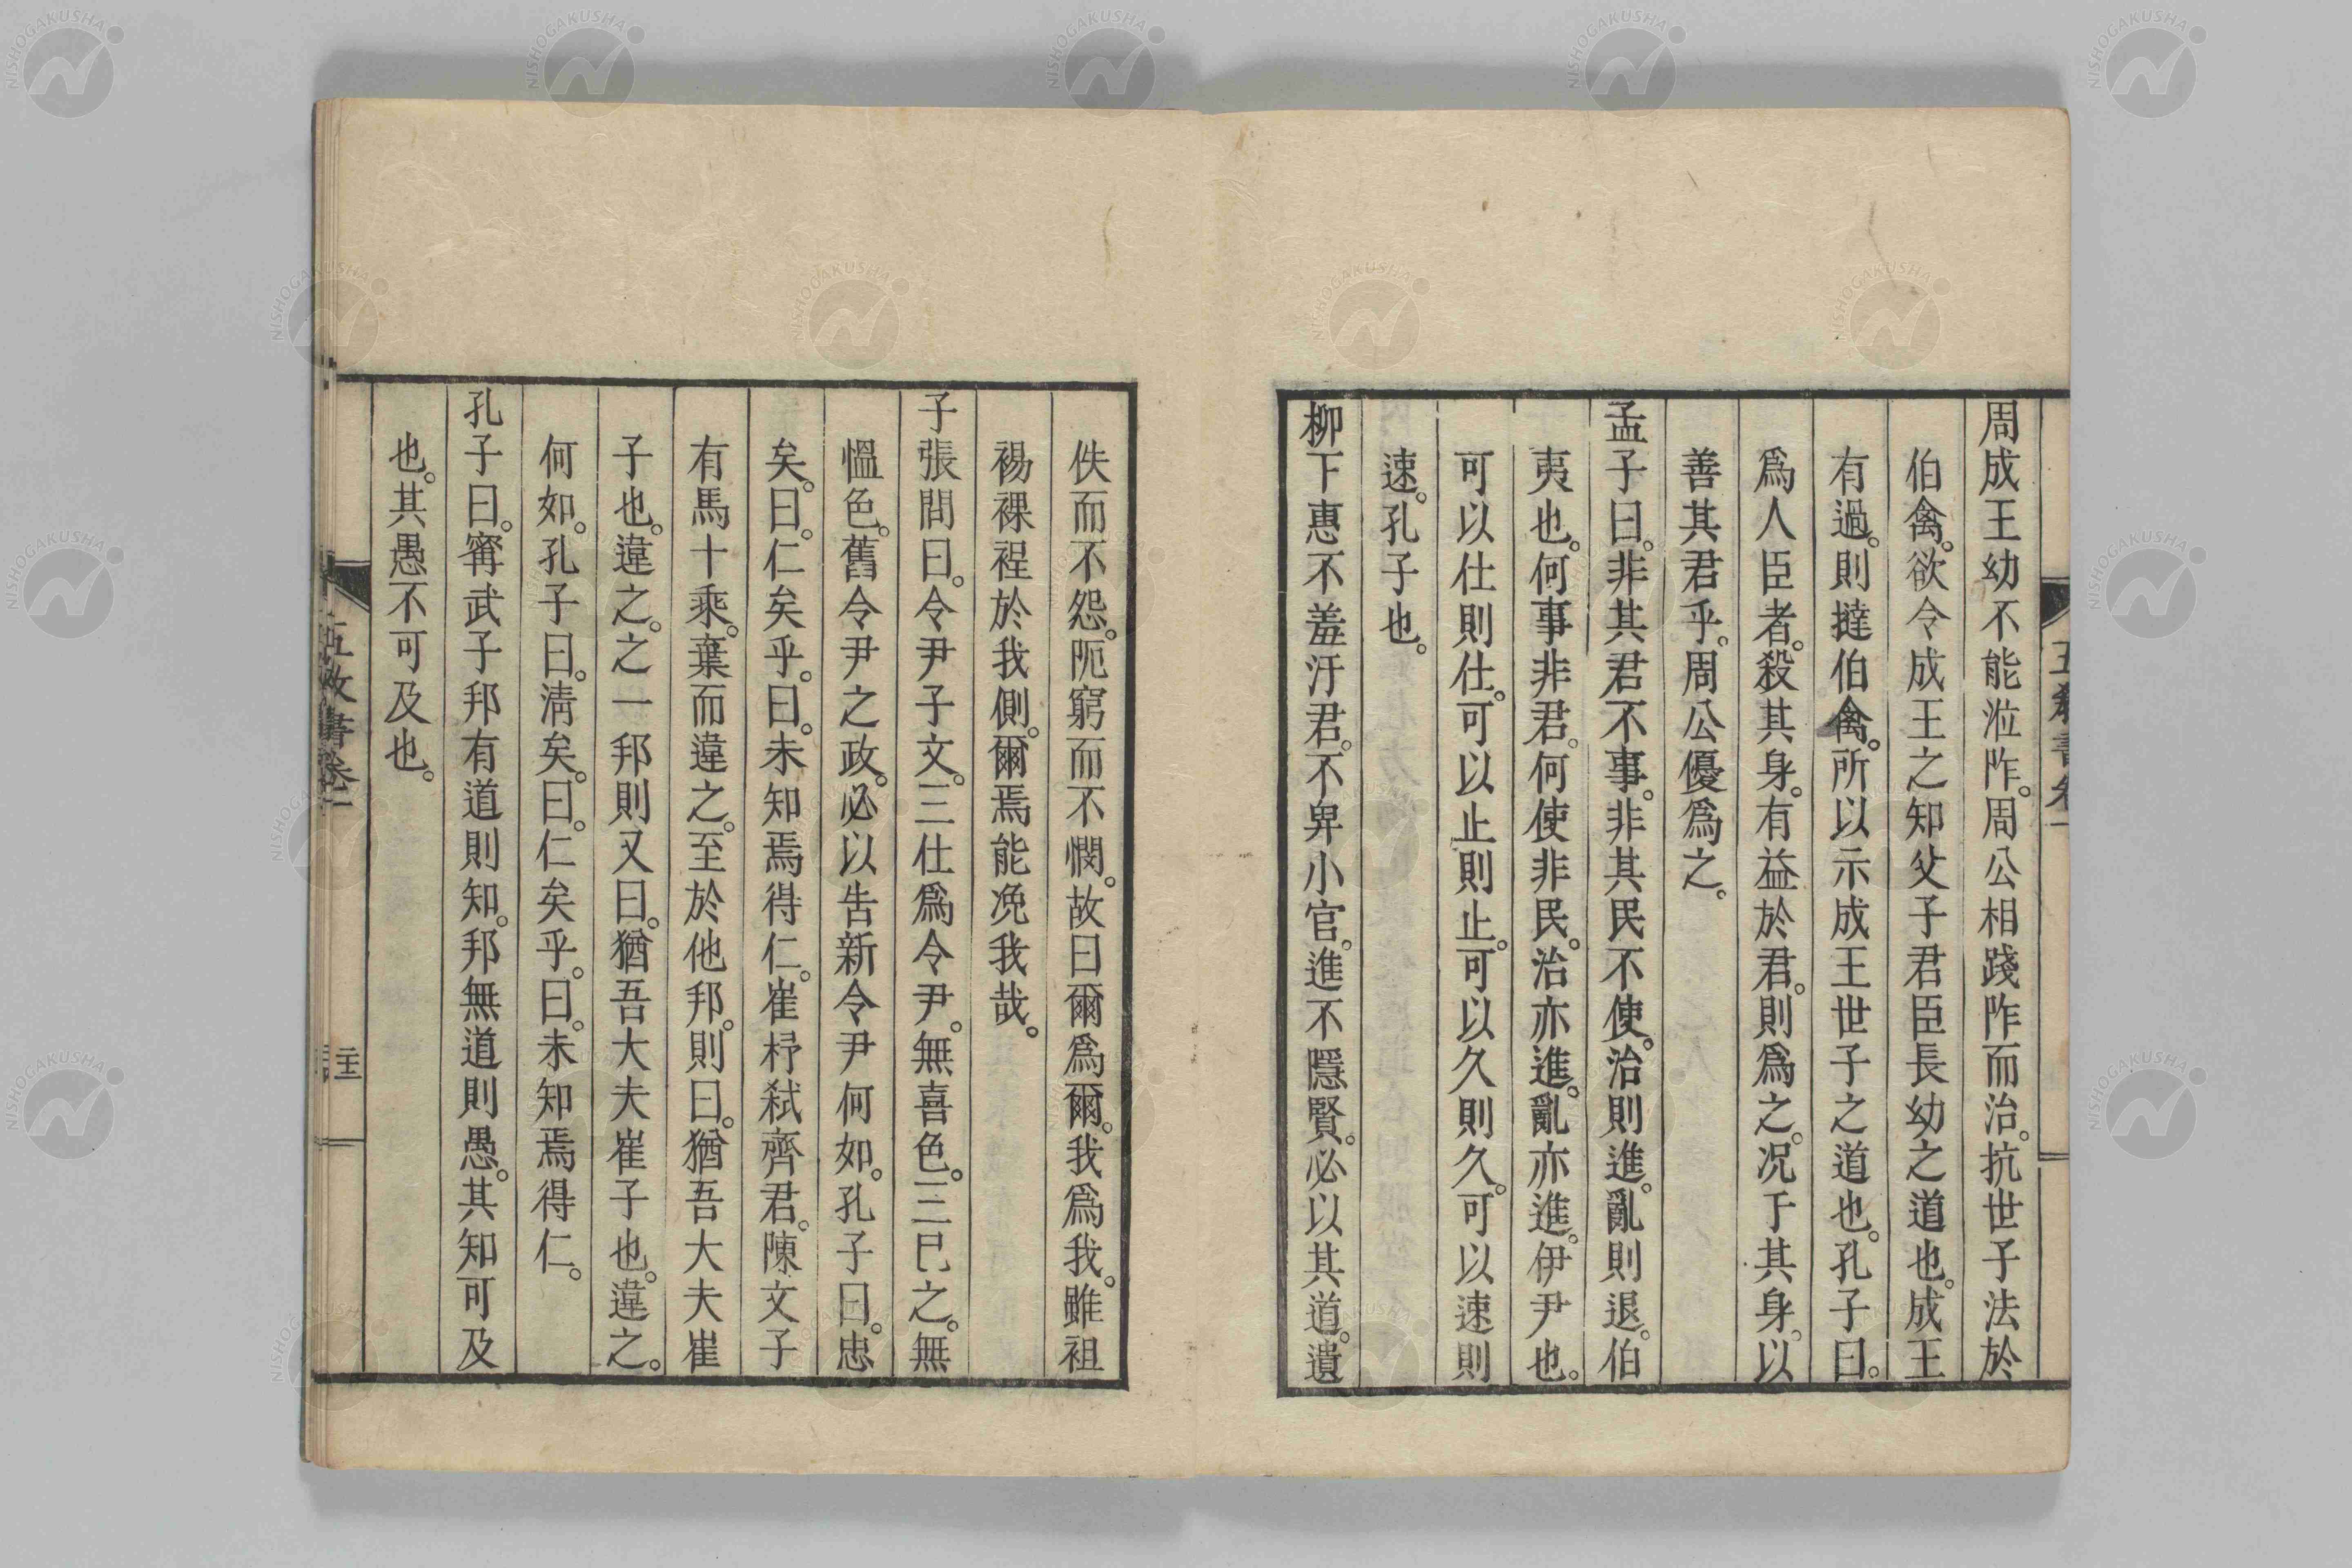 周成王幼不能涖阼。周公相踐阼而治。抗世子法於
伯禽。欲令成王之知父子君臣長幼之道也。成王
有過。則撻伯禽。所以示成王世子之道也。孔子曰。
爲人臣者。殺其身。有益於君。則爲之。况于其身。以
善其君乎。周公優爲之。
孟子曰。非其君不事。非其民不使。治則進。亂則退。伯
夷也。何事非君。何使非民。治亦進。亂亦進。伊尹也。
可以仕則仕。可以止則止。可以久則久。可以速則
速。孔子也。
柳下惠不羞汙君。不卑小官。進不隱賢。必以其道。遺
佚而不怨。阨窮而不憫。故曰爾爲爾。我爲我。雖袒
裼裸裎於我側。爾焉能浼我哉。
子張問曰。令尹子文。三仕爲令尹。無喜色。三巳之。無
慍色。舊令尹之政。必以告新令尹何如。孔子曰。忠
矣。曰。仁矣乎。曰。未知焉得仁。崔杼弑齊君。陳文子
有馬十乘。棄而違之。至於他邦。則曰。猶吾大夫崔
子也。違之。之一邦則又曰。猶吾大夫崔子也。違之。
何如。孔子曰。淸矣。曰。仁矣乎。曰。未知焉得仁。
孔子曰。甯武子邦有道則知。邦無道則愚。其知可及
也。其愚不可及也。
五敎書卷一
NISHOGAKUSHA